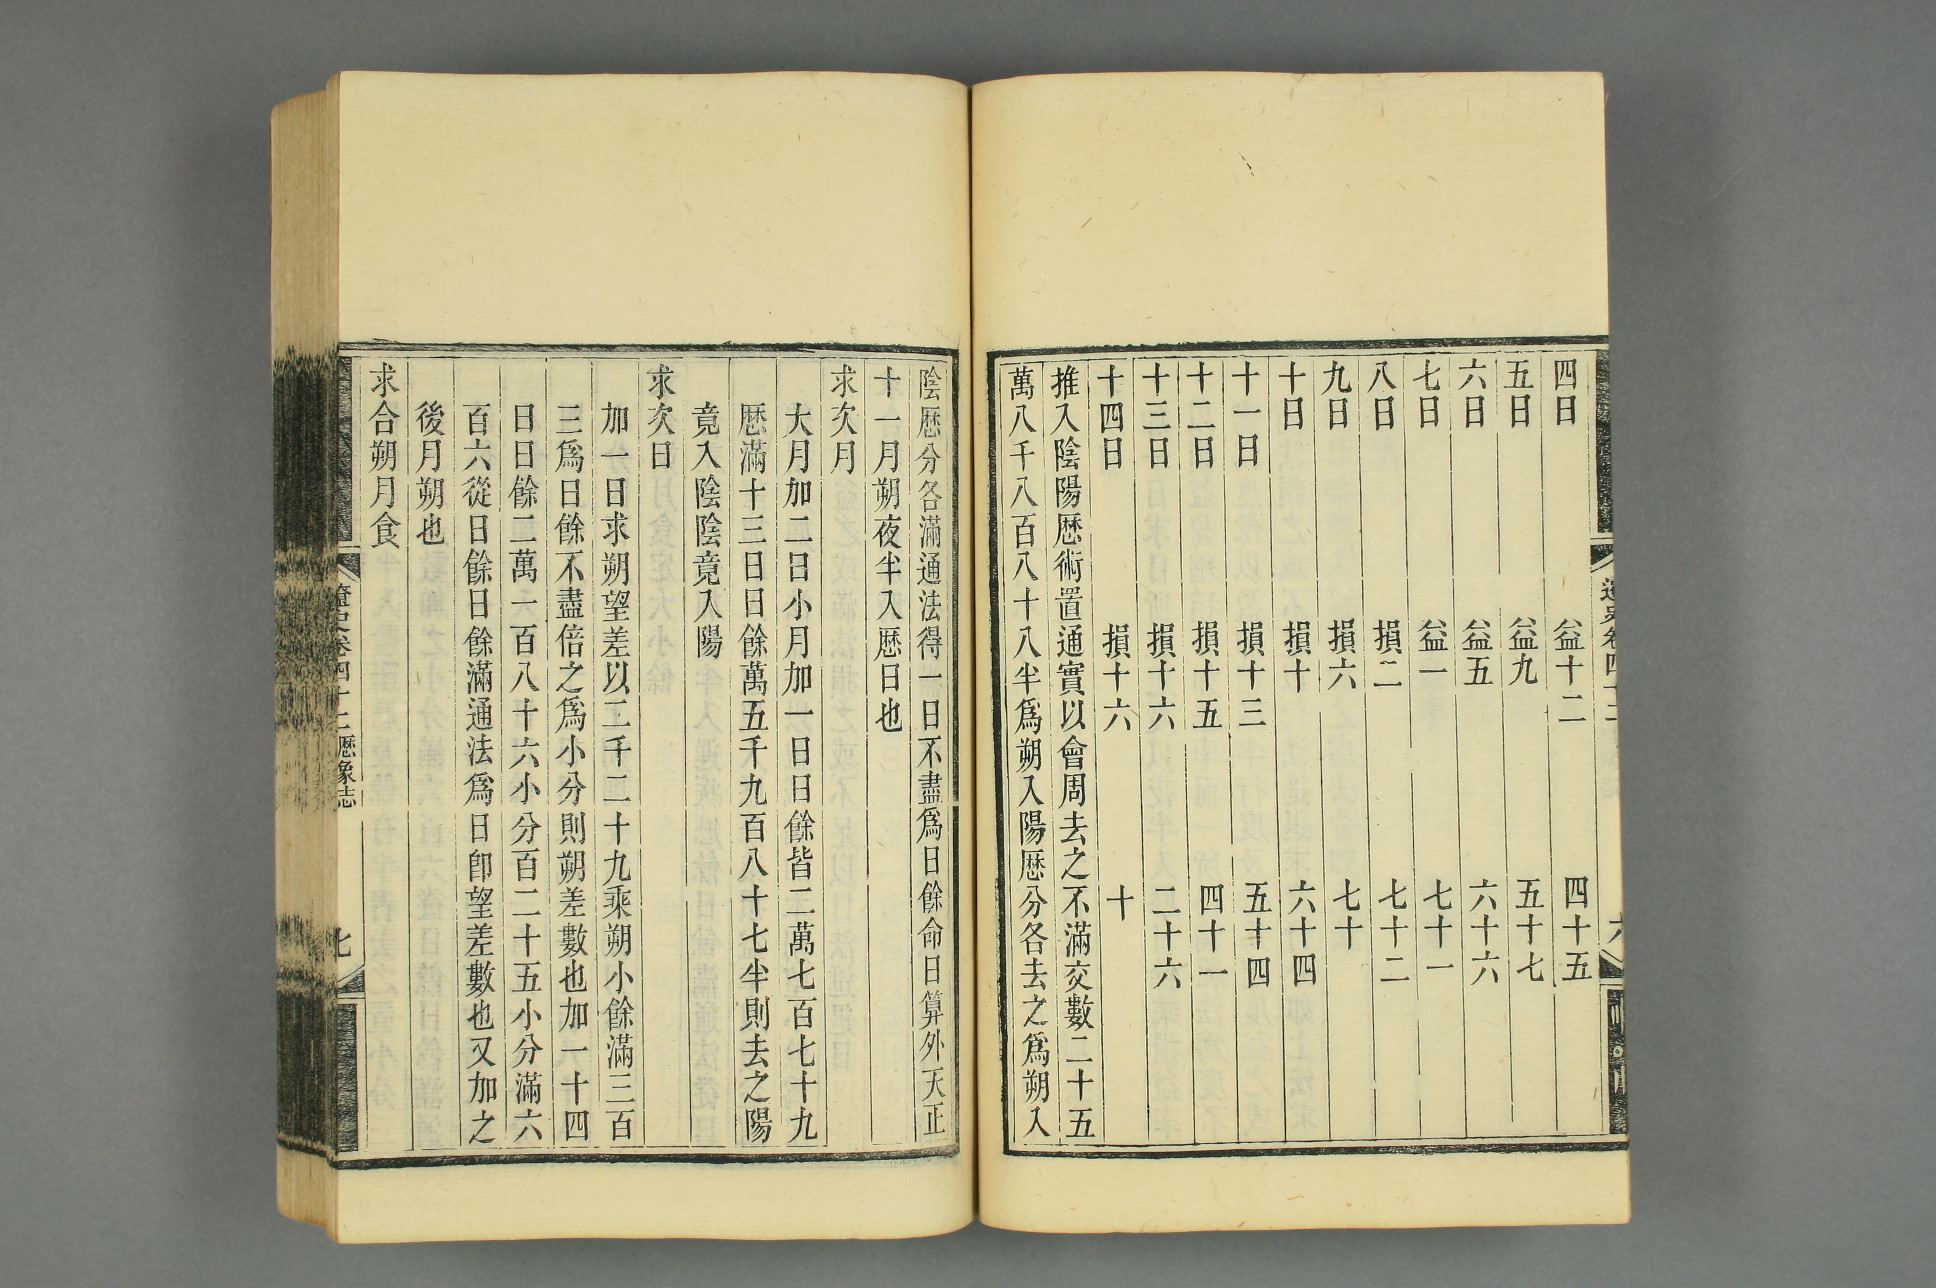 四日 益十二 四十五
五日 益九 五十七
六日 益五 六十六
七日 益一 七十一
八日 損二 七十二
九日 損六 七十
十日 損十 六十四
十一日 損十三 五十四
十二日 損十五 四十一
十三日 損十六 二十六
十四日 損十六 十
推入陰陽厯術置通實以會周去之不滿交數二十五
萬八千八百八十八半為朔入陽厯分各去之為朔入
陰厯分各滿通法得一日不盡為日餘命日算外天正
十一月朔夜半入厯日也
求次月
大月加二日小月加一日日餘皆二萬七百七十九
厯滿十三日日餘萬五千九百八十七半則去之陽
竟入陰陰竟入陽
求次日
加一日求朔望差以二千二十九乘朔小餘滿三百
三為日餘不盡倍之為小分則朔差數也加一十四
日日餘二萬一百八十六小分百二十五小分滿六
百六從日餘日餘滿通法為日卽望差數也又加之
後月朔也
求合朔月食
遼史卷四十二厯象志
七